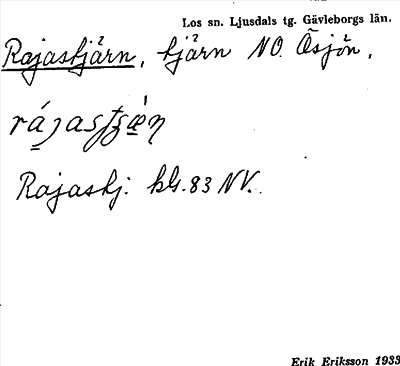 Los sn. Ljusdals tg. Gävleborgs län.
Rajastjärn, tjärn NO. Åsjön,
Rajastj. bl. 83 NV.
Erik Eriksson 1933